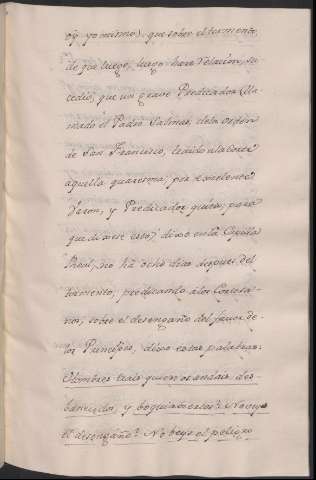 oy yo mismo). que sobre el tormento,
de que luego, luego hare relacion, su
cedio, que un grave Predicador (lla
mado el Padre Salinas, dela orden
de San Francisco, traido ala Corte
aquella quaresma, por excelente
Varon, y Predicador, quiça, para
que dixesse esto) dixo en la Capilla
Real, no ha ocho dias despues del
tormento, predicando à los Cortesa-
nos, sobre el desengaño del favor de
los Principes, dixo estas palabras.
Hombres tras quien os andais des
banecidos, y boquiabiertos? No veys
el desengaño? No beys el peligro